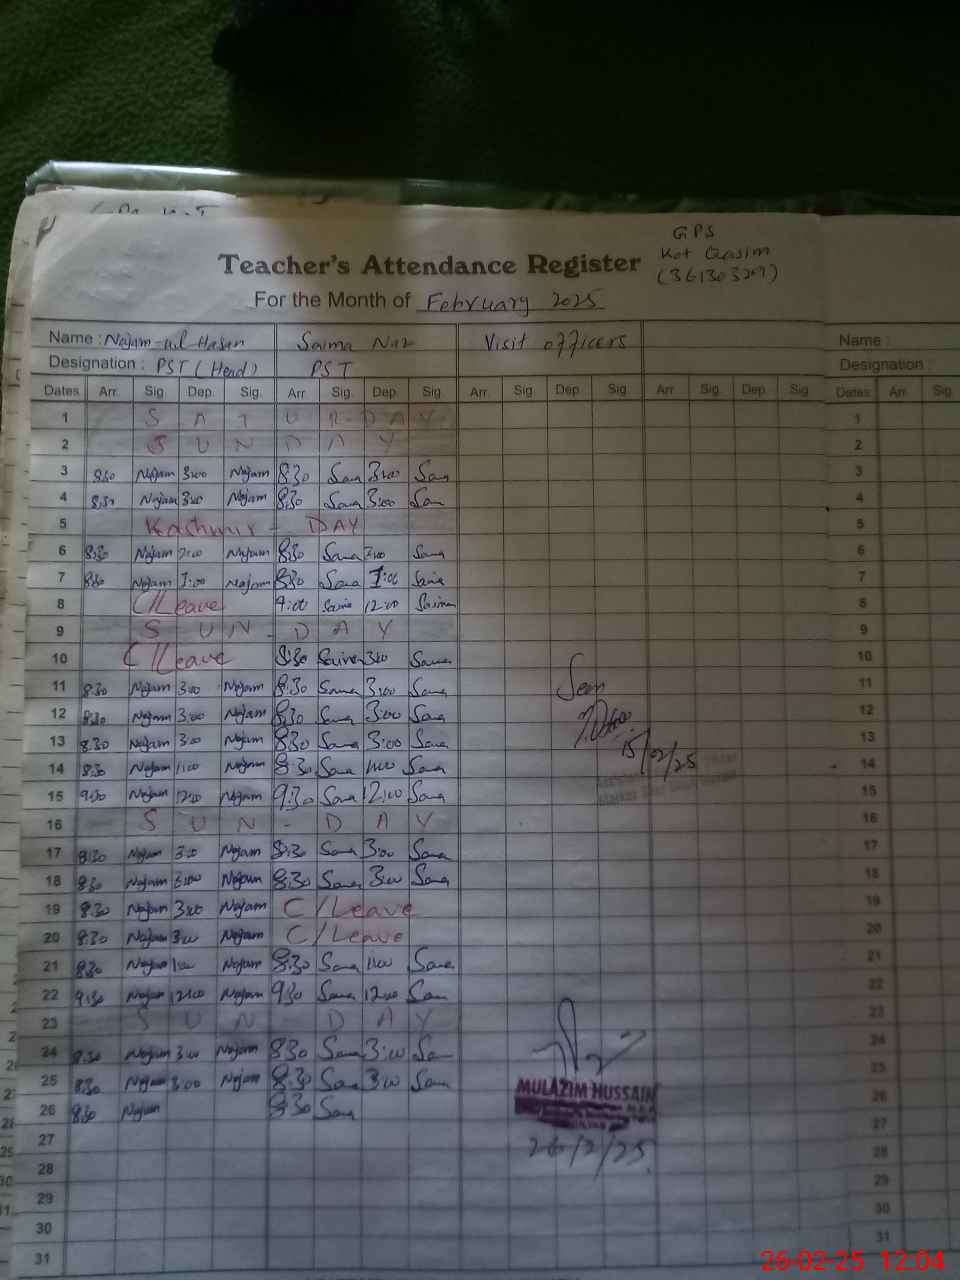 GPS
Kot Qasim
(361303209)
Teacher's Attendance Register
For the Month of February 2025
Name : Najam-ul-Hasan Saima Naz Visit officers Name :
Designation : PST (Head) PST Designation :
Dates Arr. Sig. Dep. Sig. Arr Sig. Dep. Sig. Arr. Sig. Dep. Sig. Arr. Sig. Dep. Sig. Dates Arr. Sig.
1 S A T U R D A Y 1
2 S U N D A Y 2
3 8:30 Najam 3:00 Najam 8:30 3:00 3
4 8:30 Najam 3:00 Najam 8:30 3:00 4
5 Kashmir - DAY 5
6 8:30 Najam Najam 8:30 6
7 8:30 Najam 1:00 Najam 8:30 1:00 7
8 C/Leave 9:00 12:00 Saima 8
9 S U N - D A Y 9
10 C/Leave 8:30 3:00 10
11 8:30 Najam 3:00 Najam 8:30 3:00 11
12 8:30 Najam 3:00 Najam 8:30 3:00 12
13 8:30 Najam 3:00 Najam 8:30 3:00 13
14 8:30 Najam 1:00 Najam 8:30 1:00 14
15 9:30 Najam 12:00 Najam 9:30 12:00 15
16 S U N - D A Y 16
17 8:30 Najam 3:00 Najam 8:30 3:00 17
18 8:30 Najam 3:00 Najam 8:30 3:00 18
19 8:30 Najam 3:00 Najam C/Leave 19
20 8:30 Najam 3:00 Najam C/Leave 20
21 8:30 Najam 1:00 Najam 8:30 1:00 21
22 9:30 Najam 12:00 Najam 9:30 12:00 22
23 S U N - D A Y 23
24 8:30 Najam 3:00 Najam 8:30 3:00 24
25 8:30 Najam 3:00 Najam 8:30 3:00 25
26 8:30 Najam 8:30 26
27 27
28 28
29 29
30 30
31 31
Seen
15/02/25
MULAZIM HUSSAIN
26/2/25
26-02-25 12:04